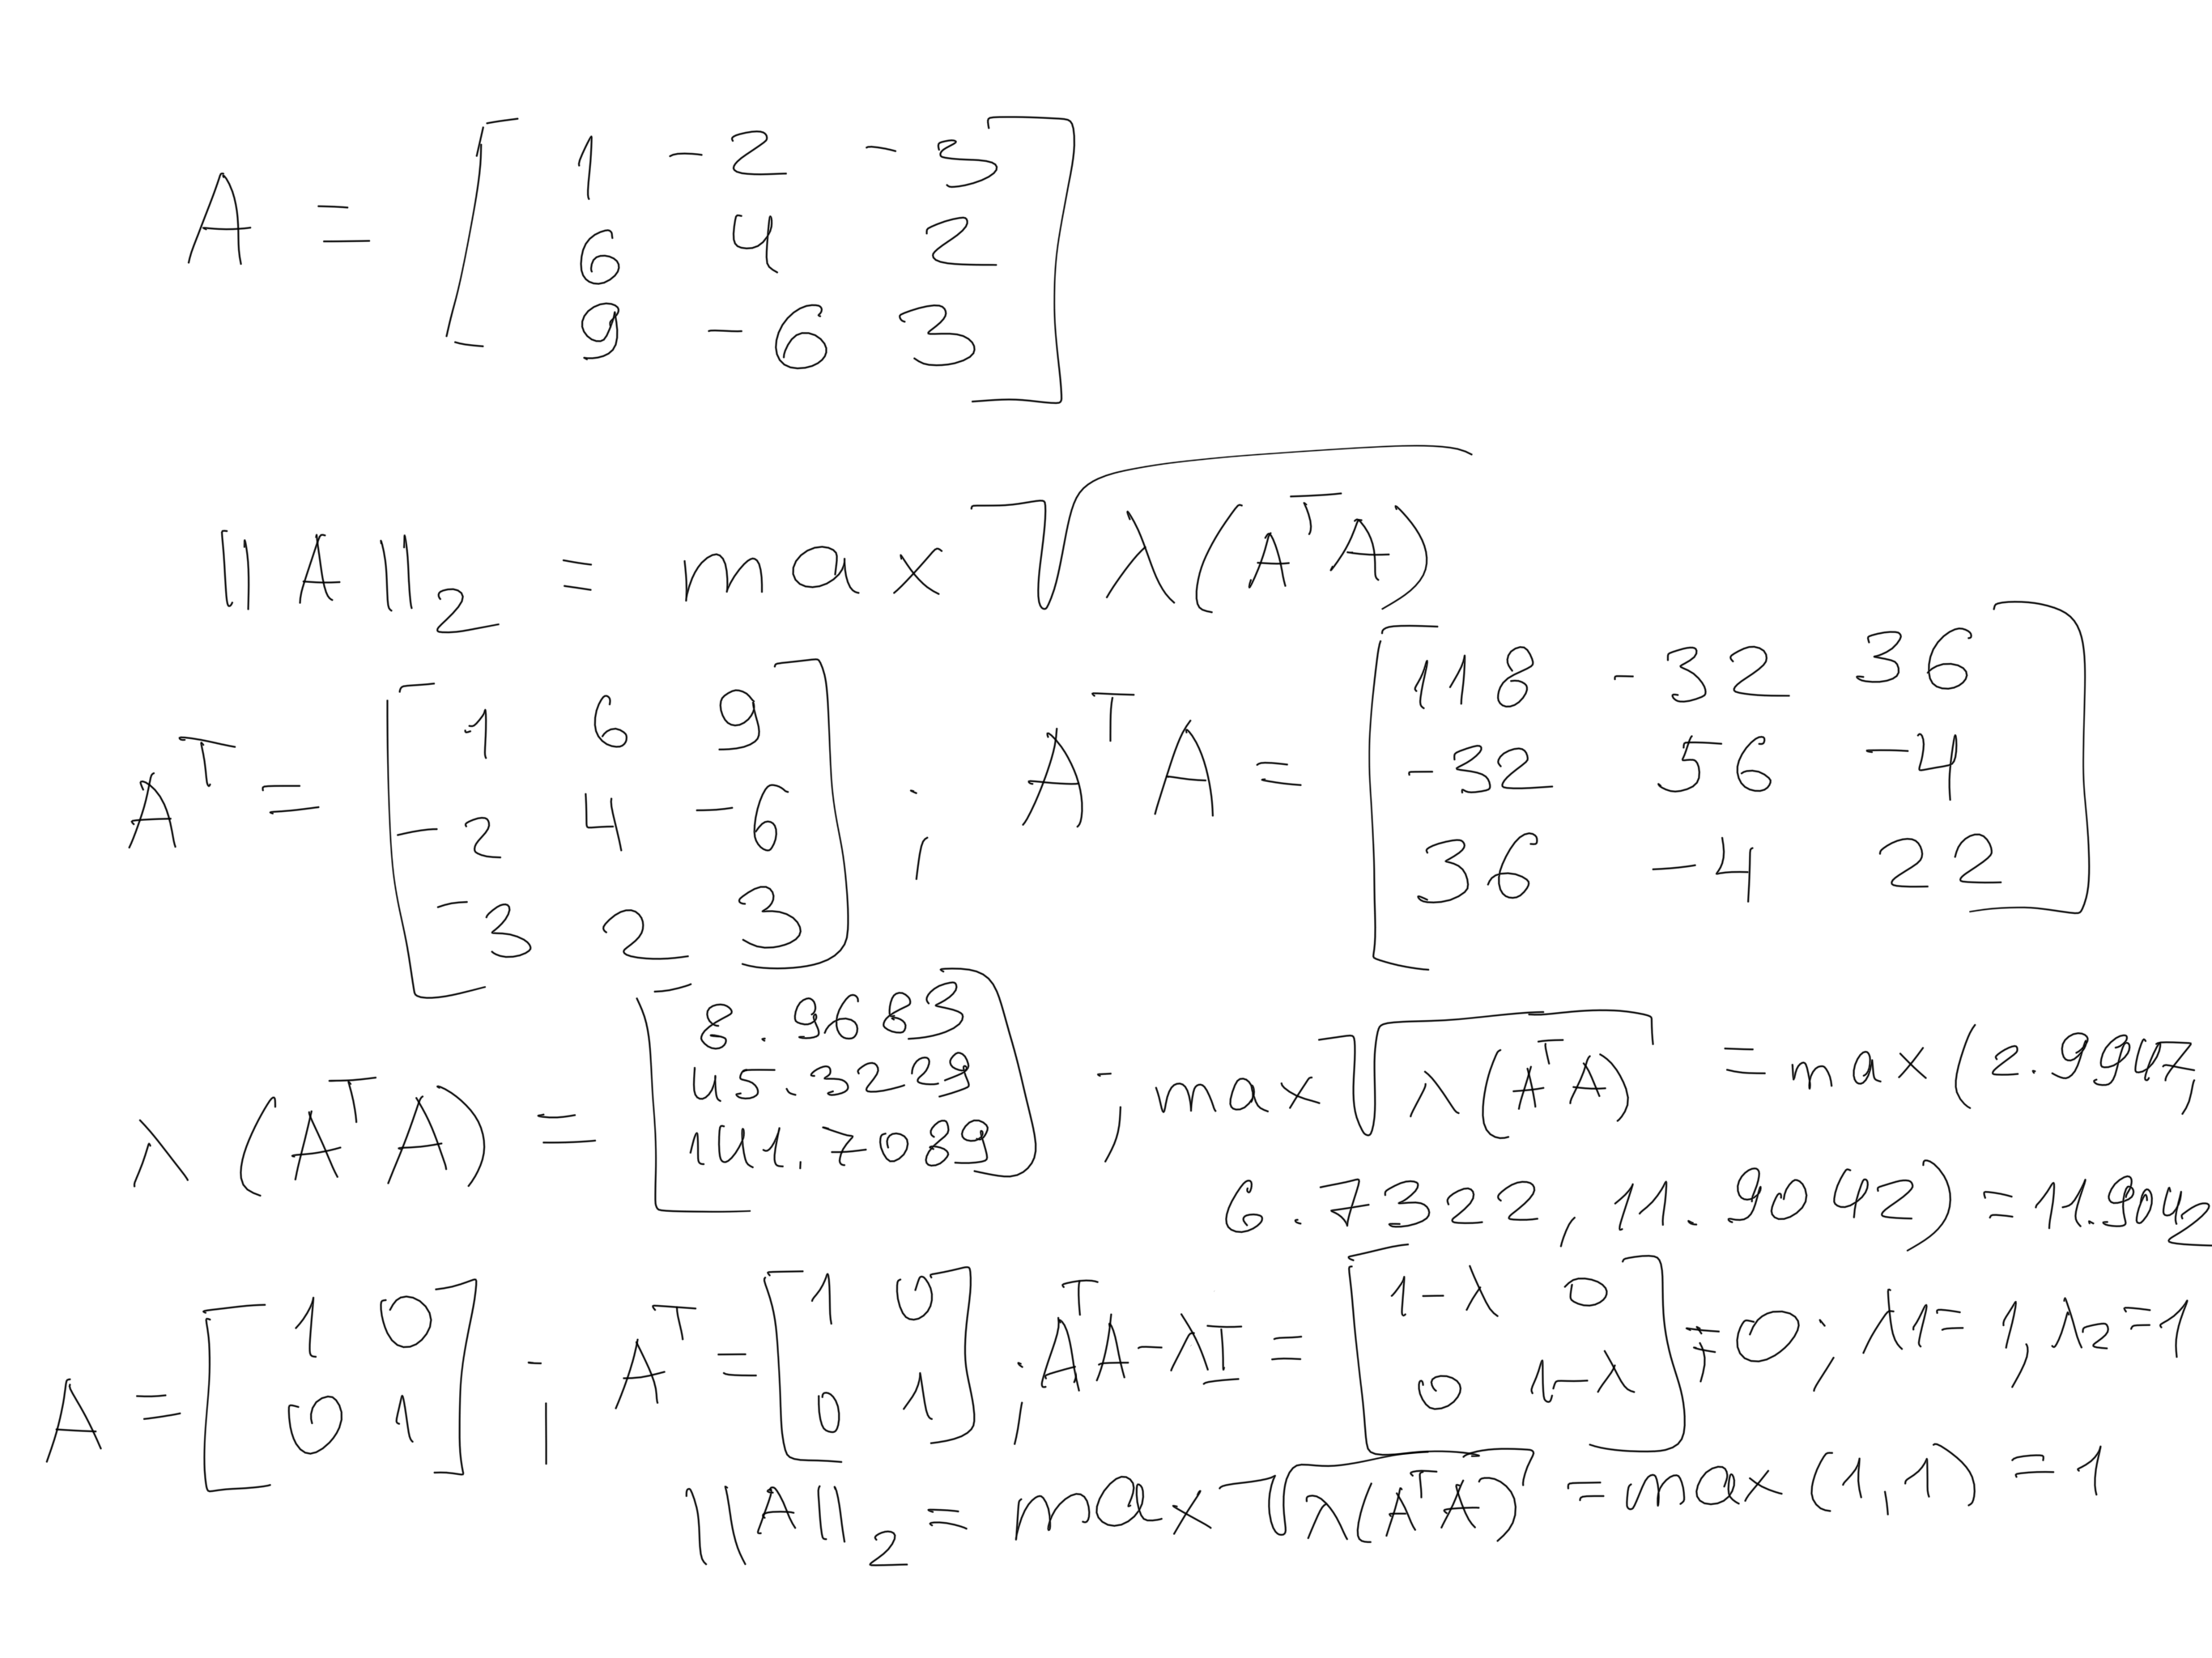 A = [ 1 -2 -3
6 4 2
9 -6 3 ]
||A||₂ = max √λ(AᵀA)
Aᵀ = [ 1 6 9
-2 4 -6
-3 2 3 ] ; AᵀA = [ 118 -32 36
-32 56 -4
36 -4 22 ]
λ(AᵀA) = [ 8.9683
45.3229
141.7089 ] ; max √λ(AᵀA) = max(2.9947,
6.7322, 11.9042) = 11.9042
A = [ 1 0
0 1 ] ; Aᵀ = [ 1 0
0 1 ] ; AᵀA-λI = [ 1-λ 0
0 1-λ ] = 0 ; λ1 = 1, λ2 = 1
||A||₂ = max √λ(AᵀA) = max(1,1) = 1